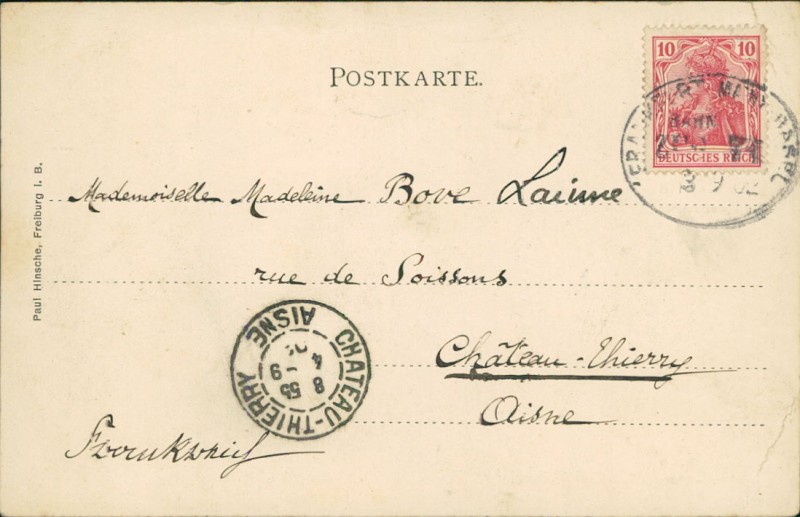 POSTKARTE.
10 10
DEUTSCHES REICH
BAHN
Mademoiselle Madeleine Bove Laisme
rue de Soissons
Château-Thierry
Aisne
Frankreich
CHATEAU-THIERRY AISNE
8 55
4 - 9
02
Paul Hinsche, Freiburg I. B.